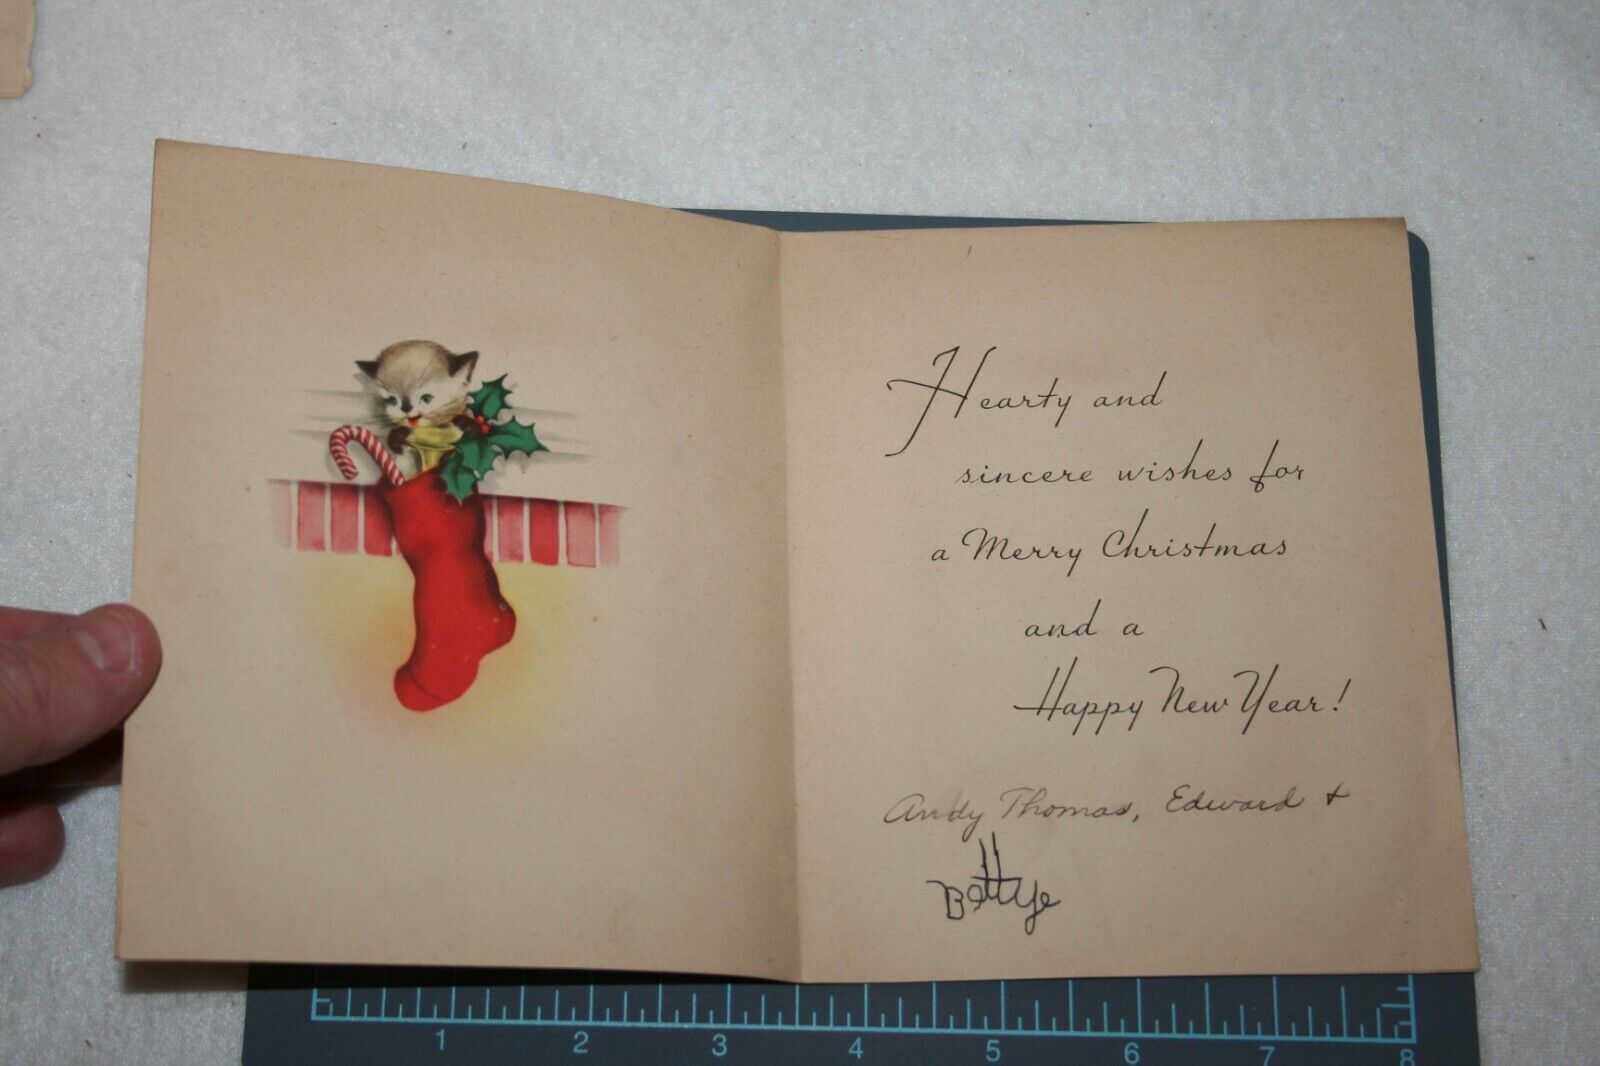 Hearty and
sincere wishes for
a Merry Christmas
and a
Happy New Year!
Andy Thomas, Edward +
Bettye
1 2 3 4 5 6 7 8